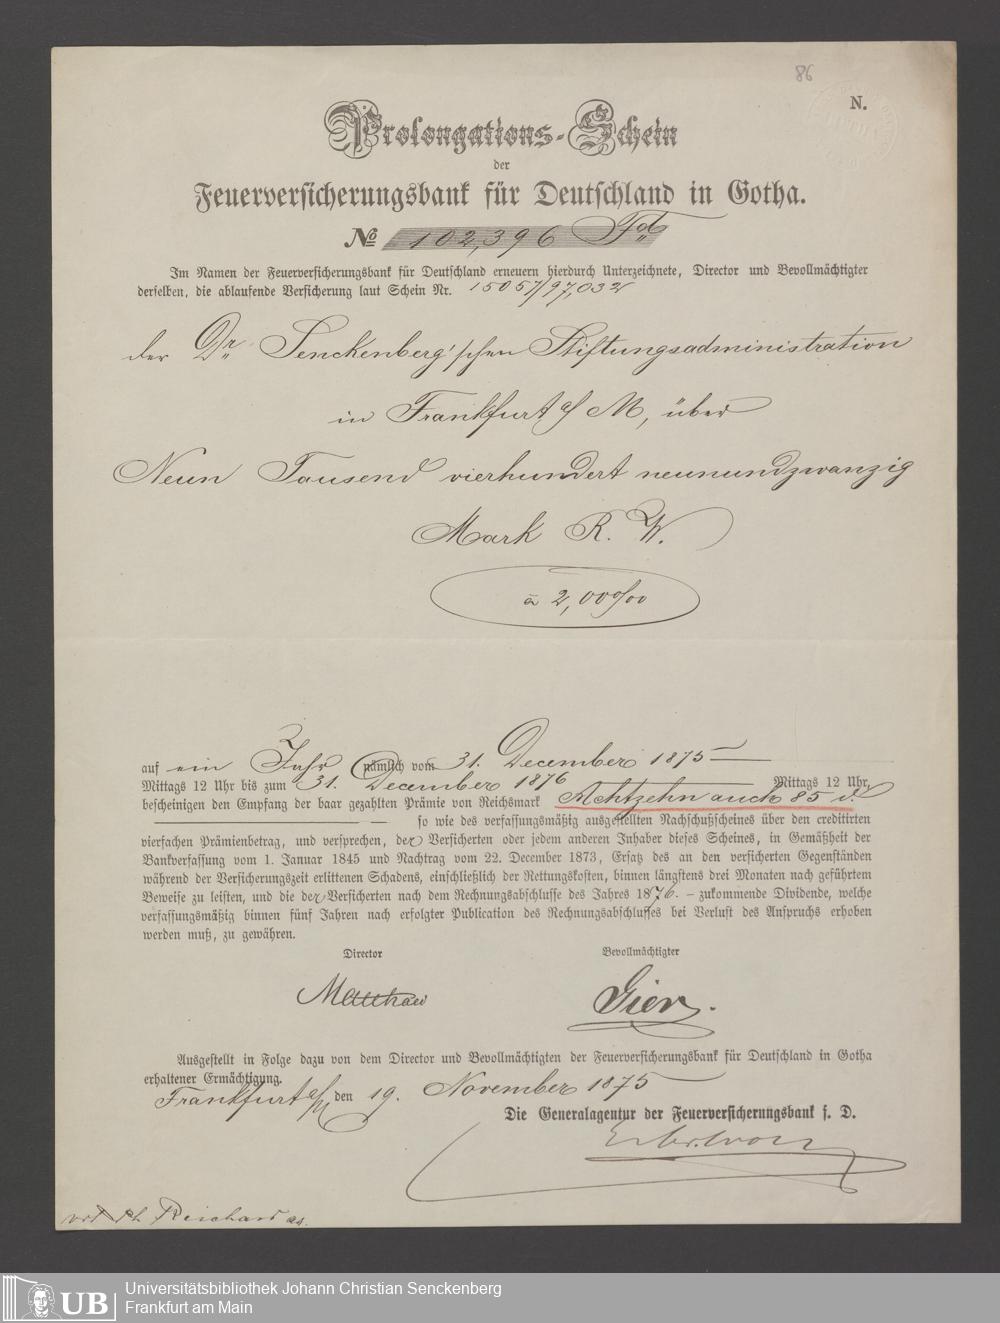 86
N.
Prolongations-Schein
der
Feuerversicherungsbank für Deutschland in Gotha.
No 102,396 Fol
Im Namen der Feuerversicherungsbank für Deutschland erneuern hierdurch Unterzeichnete, Director und Bevollmächtigter
derselben, die ablaufende Versicherung laut Schein Nr. 15057/97,032
der Dr. Senckenberg'schen Stiftungsadministration
in Frankfurt a/M, über
Neun Tausend vierhundert neunundzwanzig
Mark R. W.
à 2,00 0/00
auf ein Jahr nämlich vom 31. December 1875
Mittags 12 Uhr bis zum 31. December 1876 Mittags 12 Uhr,
bescheinigen den Empfang der baar gezahlten Prämie von Reichsmark Achtzehn auch 85 d.
so wie des verfassungsmäßig ausgestellten Nachschußscheines über den creditirten
vierfachen Prämienbetrag, und versprechen, der Versicherten oder jedem anderen Inhaber dieses Scheines, in Gemäßheit der
Bankverfassung vom 1. Januar 1845 und Nachtrag vom 22. December 1873, Ersatz des an den versicherten Gegenständen
während der Versicherungszeit erlittenen Schadens, einschließlich der Rettungskosten, binnen längstens drei Monaten nach geführtem
Beweise zu leisten, und die der Versicherten nach dem Rechnungsabschlusse des Jahres 1876. – zukommende Dividende, welche
verfassungsmäßig binnen fünf Jahren nach erfolgter Publication des Rechnungsabschlusses bei Verlust des Anspruchs erhoben
werden muß, zu gewähren.
Director Bevollmächtigter
Gier.
Ausgestellt in Folge dazu von dem Director und Bevollmächtigten der Feuerversicherungsbank für Deutschland in Gotha
erhaltener Ermächtigung.
Frankfurt a/M den 19. November 1875
Die Generalagentur der Feuerversicherungsbank f. D.
Reichard
UB
Universitätsbibliothek Johann Christian Senckenberg
Frankfurt am Main